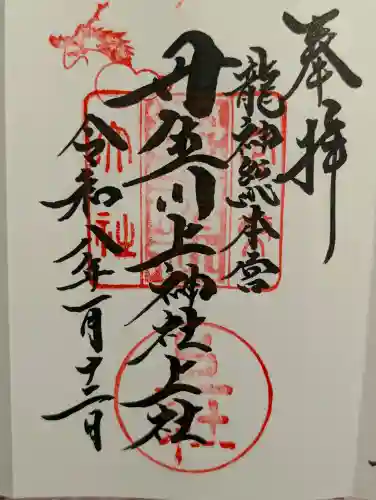 奉拝
龍神総本宮
丹生川上神社上社
令和八年一月十三日